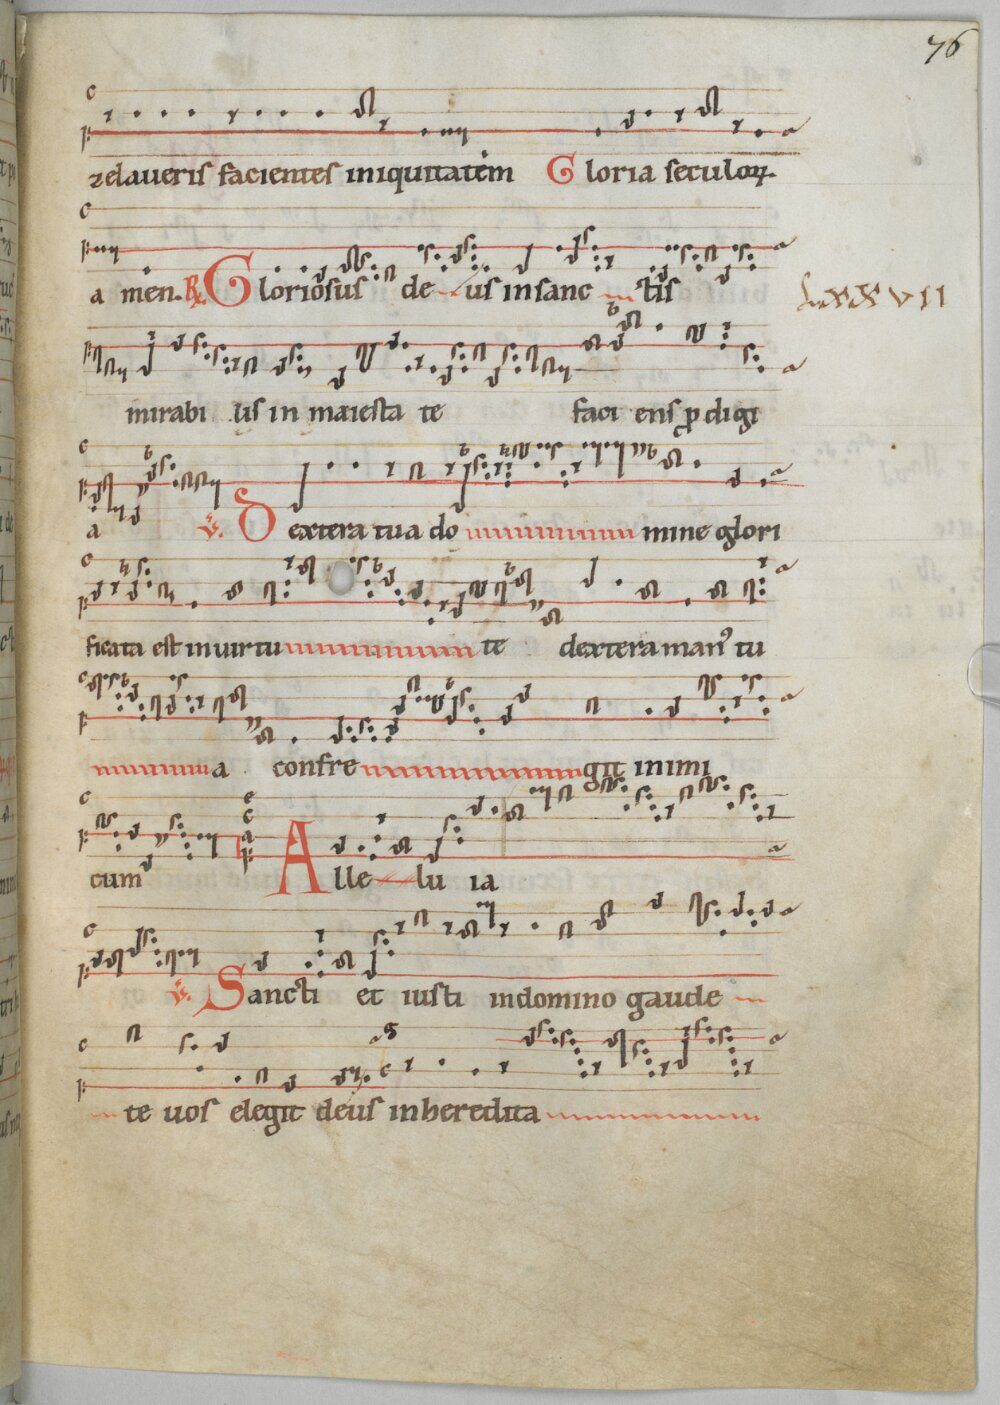 76
zelaueris facientes iniquitatem Gloria seculoꝝ
amen. ℟ Gloriosus deus in sanctis
LXXVII
mirabilis in maiestate faciens ꝓdigi
a ℣. Dextera tua domine glori
ficata est in uirtute dextera manꝰ tu
a confregit inimi
cum Alleluia
℣. Sancti et iusti in domino gaude
te uos elegit deus in heredita